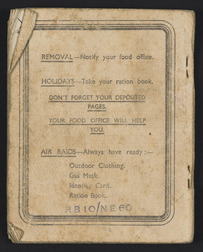 REMOVAL—Notify your food office.
HOLIDAYS—Take your ration book.
DON'T FORGET YOUR DEPOSITED
PAGES.
YOUR FOOD OFFICE WILL HELP
YOU.
AIR RAIDS—Always have ready:—
Outdoor Clothing.
Gas Mask.
Identity Card.
Ration Book.